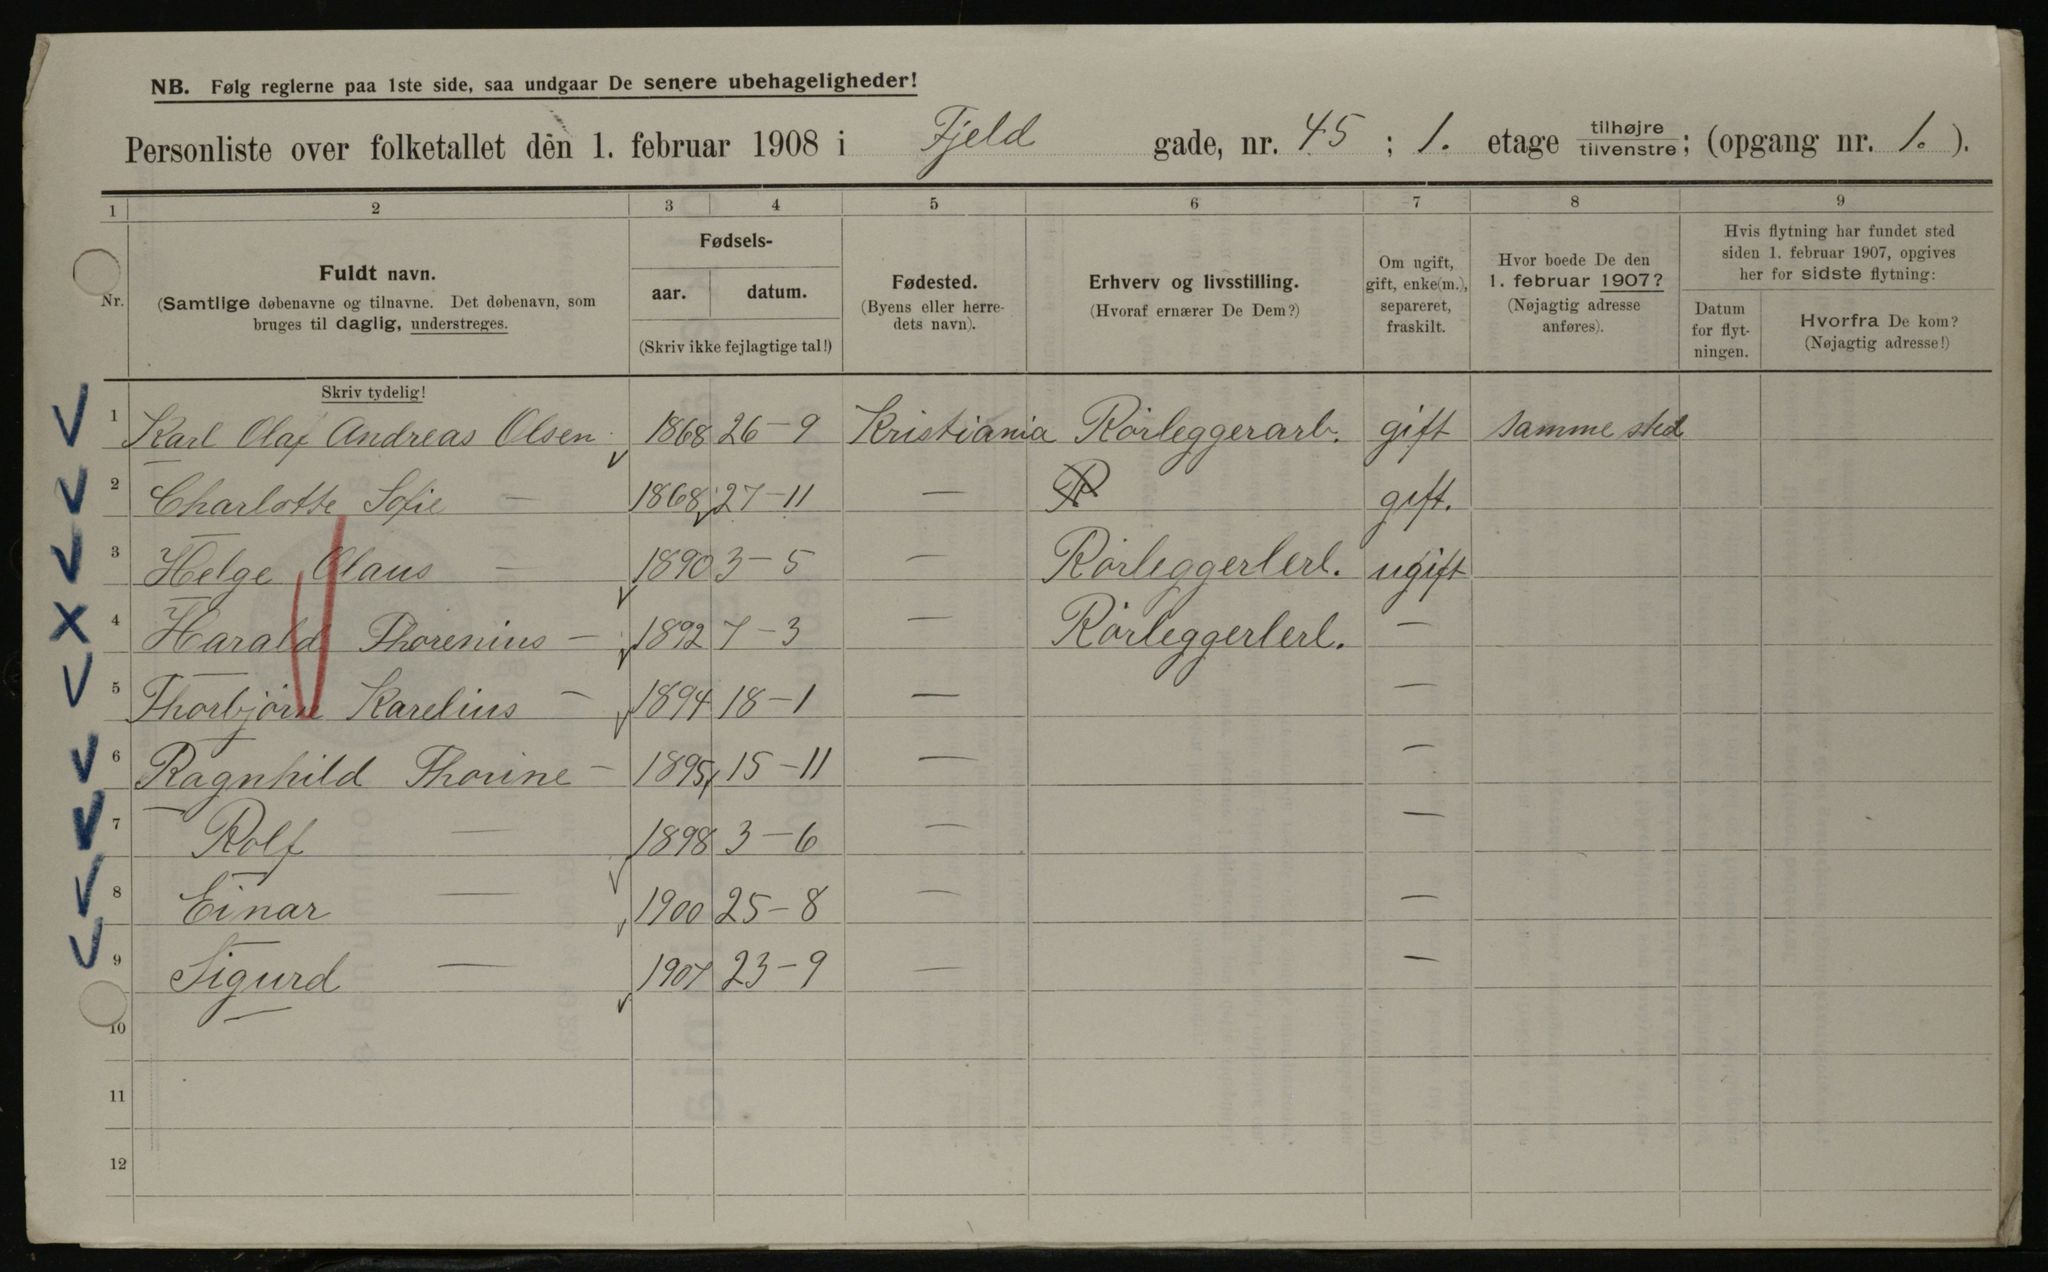 NB. Følg reglerne paa 1ste side, saa undgaar De senere ubehageligheder!
Personliste over folketallet den 1. februar 1908 i Fjeld gade, nr. 45 ; 1. etage tilhøjre tilvenstre ; (opgang nr. 1. ).
1 2 3 4 5 6 7 8 9
Nr.
Fuldt navn.
(Samtlige døbenavne og tilnavne. Det døbenavn, som
bruges til daglig, understreges.
Skriv tydelig!
Fødsels-
aar. datum.
(Skriv ikke fejlagtige tal!)
Fødested.
(Byens eller herre-
dets navn).
Erhverv og livsstilling.
(Hvoraf ernærer De Dem?)
Om ugift,
gift, enke(m.),
separeret,
fraskilt.
Hvor boede De den
1. februar 1907?
(Nøjagtig adresse
anføres).
Hvis flytning har fundet sted
siden 1. februar 1907, opgives
her for sidste flytning:
Datum
for flyt-
ningen.
Hvorfra De kom?
(Nøjagtig adresse!)
1 Karl Olaf Andreas Olsen 1868 26-9 Kristiania Rørleggerarb. gift samme sted
2 Charlotte Sofie — 1868 27-11 — R gift.
3 Helge Olaus — 1890 3-5 — Rørleggerlerl. ugift
4 Harald Thorenius — 1892 7-3 — Rørleggerlerl. —
5 Thorbjørn Karelius — 1894 18-1 — —
6 Ragnhild Thorine — 1895 15-11 — —
7 Rolf — 1898 3-6 — —
8 Einar — 1900 25-8 — —
9 Sigurd — 1907 23-9 — —
10
11
12